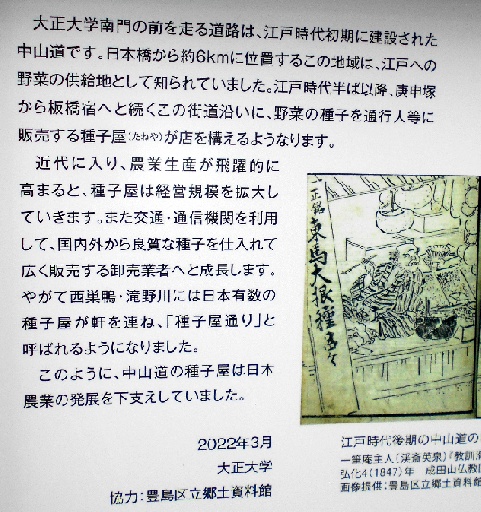 大正大学南門の前を走る道路は、江戸時代初期に建設された
中山道です。日本橋から約6kmに位置するこの地域は、江戸への
野菜の供給地として知られていました。江戸時代半ば以降、庚申塚
から板橋宿へと続くこの街道沿いに、野菜の種子を通行人等に
販売する種子屋(たねや)が店を構えるようなります。
近代に入り、農業生産が飛躍的に
高まると、種子屋は経営規模を拡大し
ていきます。また交通・通信機関を利用
して、国内外から良質な種子を仕入れて
広く販売する卸売業者へと成長します。
やがて西巣鴨・滝野川には日本有数の
種子屋が軒を連ね、「種子屋通り」と
呼ばれるようになりました。
このように、中山道の種子屋は日本
農業の発展を下支えしていました。
2022年3月
大正大学
協力:豊島区立郷土資料館
江戸時代後期の中山道の
一筆庵主人〔渓斎英泉〕『教訓
弘化4(1847)年 成田山仏教
画像提供:豊島区立郷土資料館